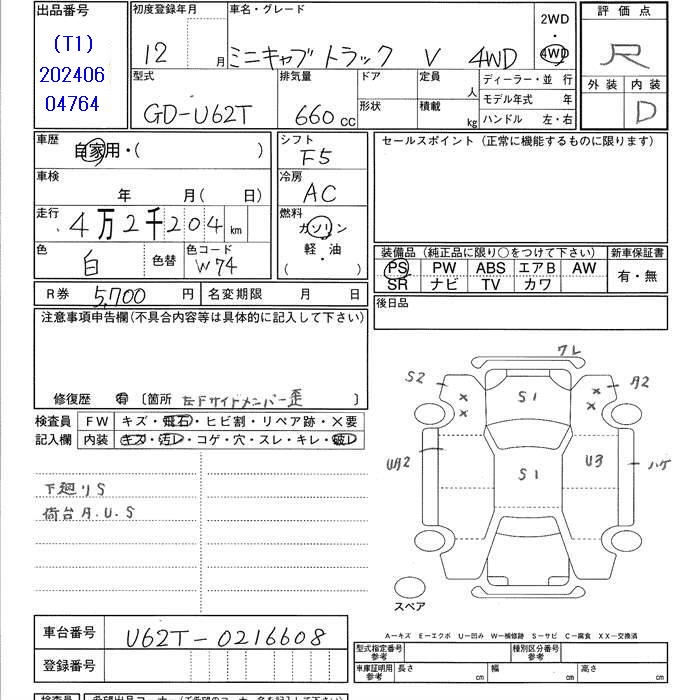 出品番号
(T1)
202406
04764
初度登録年月
12 月
車名・グレード
ミニキャブ トラック V 4WD
2WD
・
4WD
評価点
R
外装 内装
D
型式
GD-U62T
排気量
660 cc
ドア
形状
定員
人
積載
kg
ディーラー・並 行
モデル年式 年
ハンドル 左・右
車歴
自家用・( )
車検
年 月( 日)
走行
4万2千204 km
色
白
色替
色コード
W74
シフト
F5
冷房
AC
燃料
ガソリン
軽・油
( ・ )
セールスポイント(正常に機能するものに限ります)
装備品(純正品に限り○をつけて下さい)
PS PW ABS エアB AW
SR ナビ TV カワ
新車保証書
有・無
R券 5,700 円
名変期限 月 日
後日品
注意事項申告欄(不具合内容等は具体的に記入して下さい)
修復歴 有 〔箇所 左Fサイドメンバー歪 〕
検査員
記入欄
FW キズ・飛石・ヒビ割・リペア跡・×要
内装 キズ・汚レ・コゲ・穴・スレ・キレ・破レ
下廻りS
荷台A.U.S
ワレ
S2
S1
A2
UA2
S1
U3
ハゲ
スペア
A−キズ E−エクボ U−凹み W−補修跡 S−サビ C−腐食 XX−交換済
車台番号
U62T-0216608
登録番号
型式指定番号
参考
種別区分番号
参考
車庫証明用
参考
長さ cm 幅 cm 高さ cm
検査員
希望出品コーナー(ご希望のコーナー名を記入下さい)